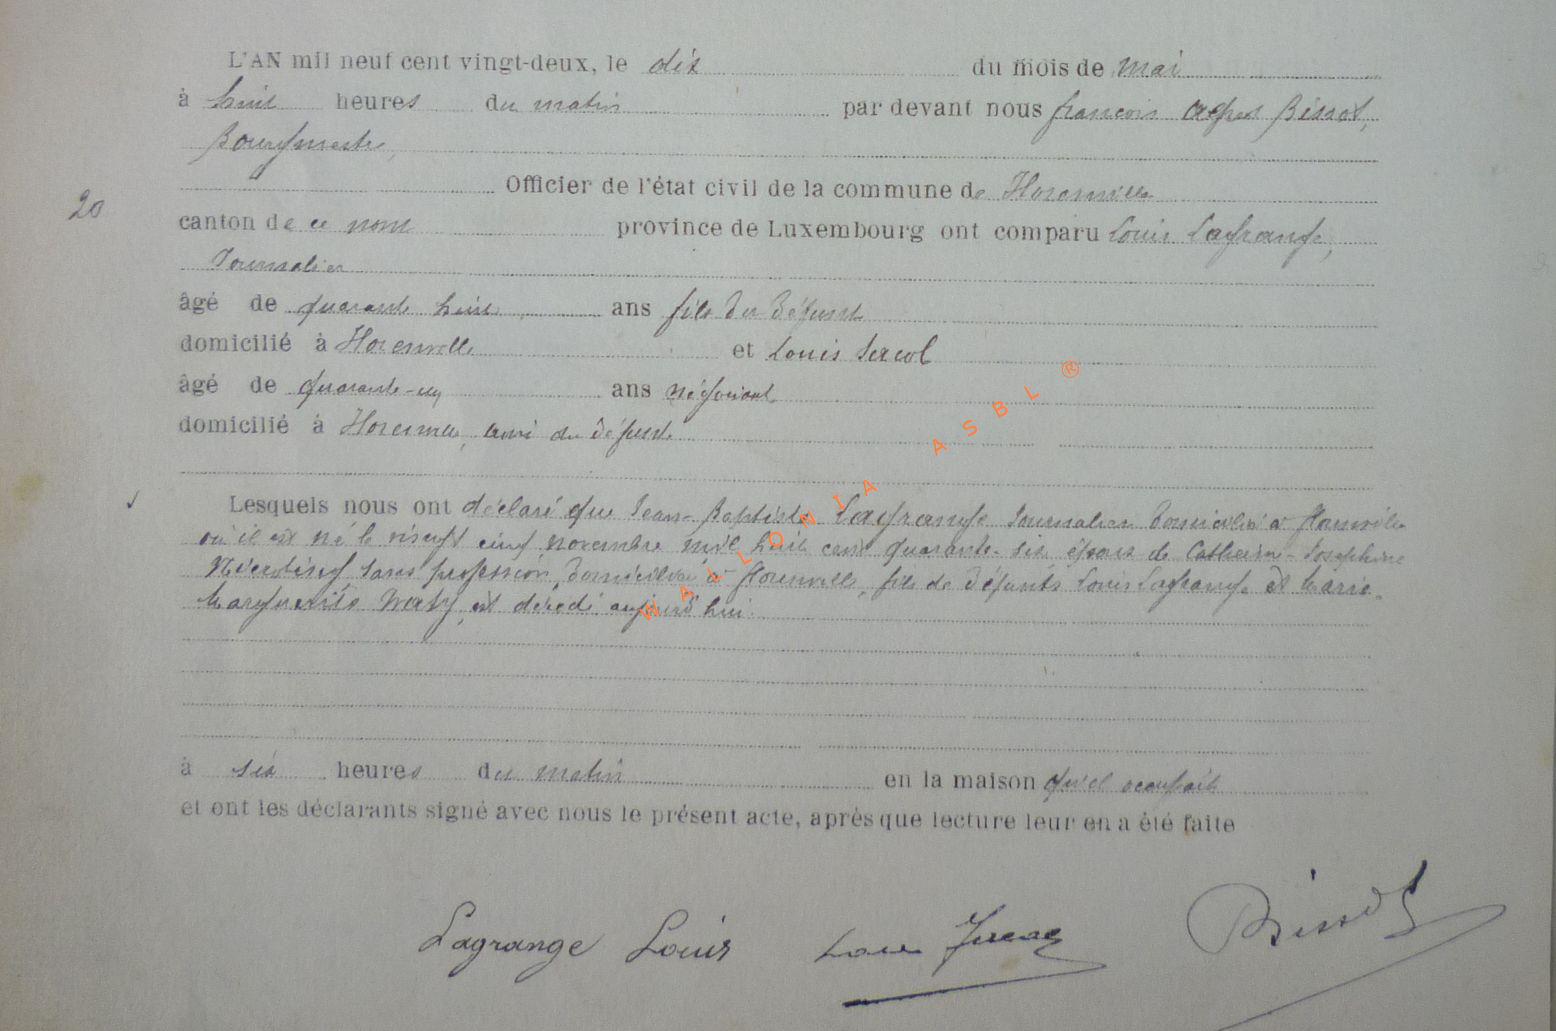 L'AN mil neuf cent vingt-deux, le dix du mois de mai
à huit heures du matin par devant nous françois Bissot,
Bourgmestre,
Officier de l'état civil de la commune de Florenville
20
canton de ce nom province de Luxembourg ont comparu Louis Lagrange,
Journalier
âgé de quarante huit ans fils du défunt
domicilié à Florenville et Louis
âgé de quarante-un ans négociant
domicilié à Florenville, ami du défunt
Lesquels nous ont déclaré que Jean-Baptiste Lagrange Journalier domicilié à Florenville
où il est né le vingt cinq novembre mil huit cent quarante-six époux de Catherine-Josephine
sans profession, domiciliée à Florenville, fils de défunts Louis Lagrange et Marie-
Marguerite est décédé aujourd'hui
à six heures du matin en la maison qu'il occupait
et ont les déclarants signé avec nous le présent acte, après que lecture leur en a été faite
Lagrange Louis Louis Bissot
WALLONIA ASBL ®